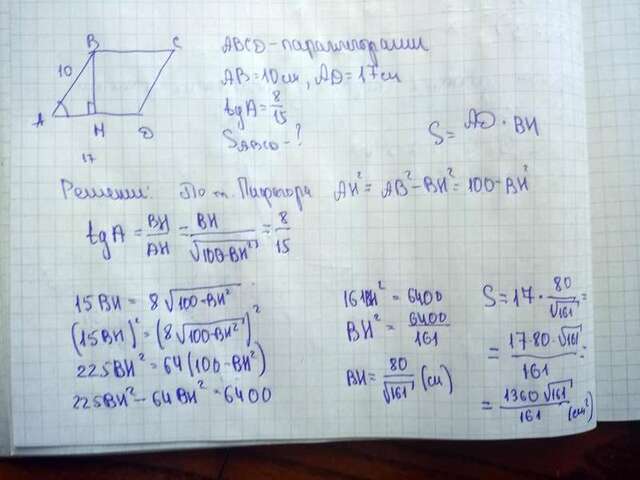 B C
10
A H D
17
ABCD - параллелограмм
AB = 10 см, AD = 17 см
tg A = 8/15
S ABCD - ?
S = AD · BH
Решение: По т. Пифагора AH² = AB² - BH² = 100 - BH²
tg A = BH/AH = BH/√(100-BH²) = 8/15
15BH = 8√(100-BH²)
(15BH)² = (8√(100-BH²))²
225BH² = 64(100-BH²)
225BH² - 64BH² = 6400
161BH² = 6400
BH² = 6400/161
BH = 80/√161 (см)
S = 17 · 80/√161 =
= 17·80·√161/161 =
= 1360√161/161 (см²)